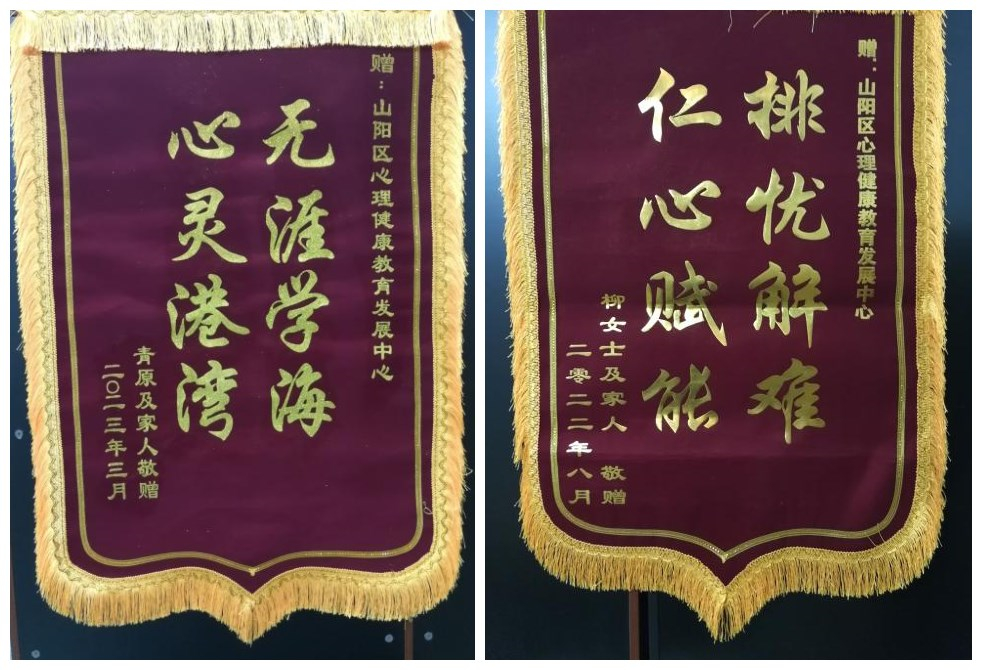 赠：山阳区心理健康教育发展中心
无涯学海
心灵港湾
青原及家人敬赠
二〇二三年三月
赠：山阳区心理健康教育发展中心
排忧解难
仁心赋能
柳女士及家人 敬赠
二零二二年八月